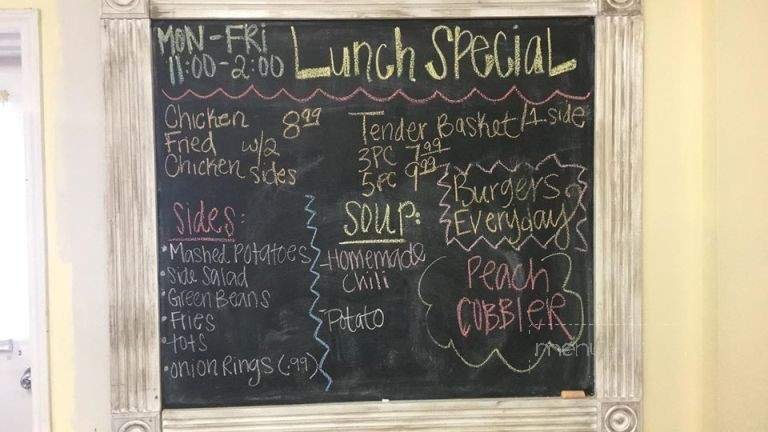 MON-FRI
11:00-2:00
Lunch Special
Chicken 8.99
Fried w/2
Chicken sides
Tender Basket/1 side
3PC 7.99
5PC 9.99
Burgers
Everyday
Sides:
•Mashed Potatoes
•Side Salad
•Green Beans
•Fries
•tots
•onion Rings (.99)
Soup:
-Homemade
Chili
-Potato
Peach
CobblER
menu